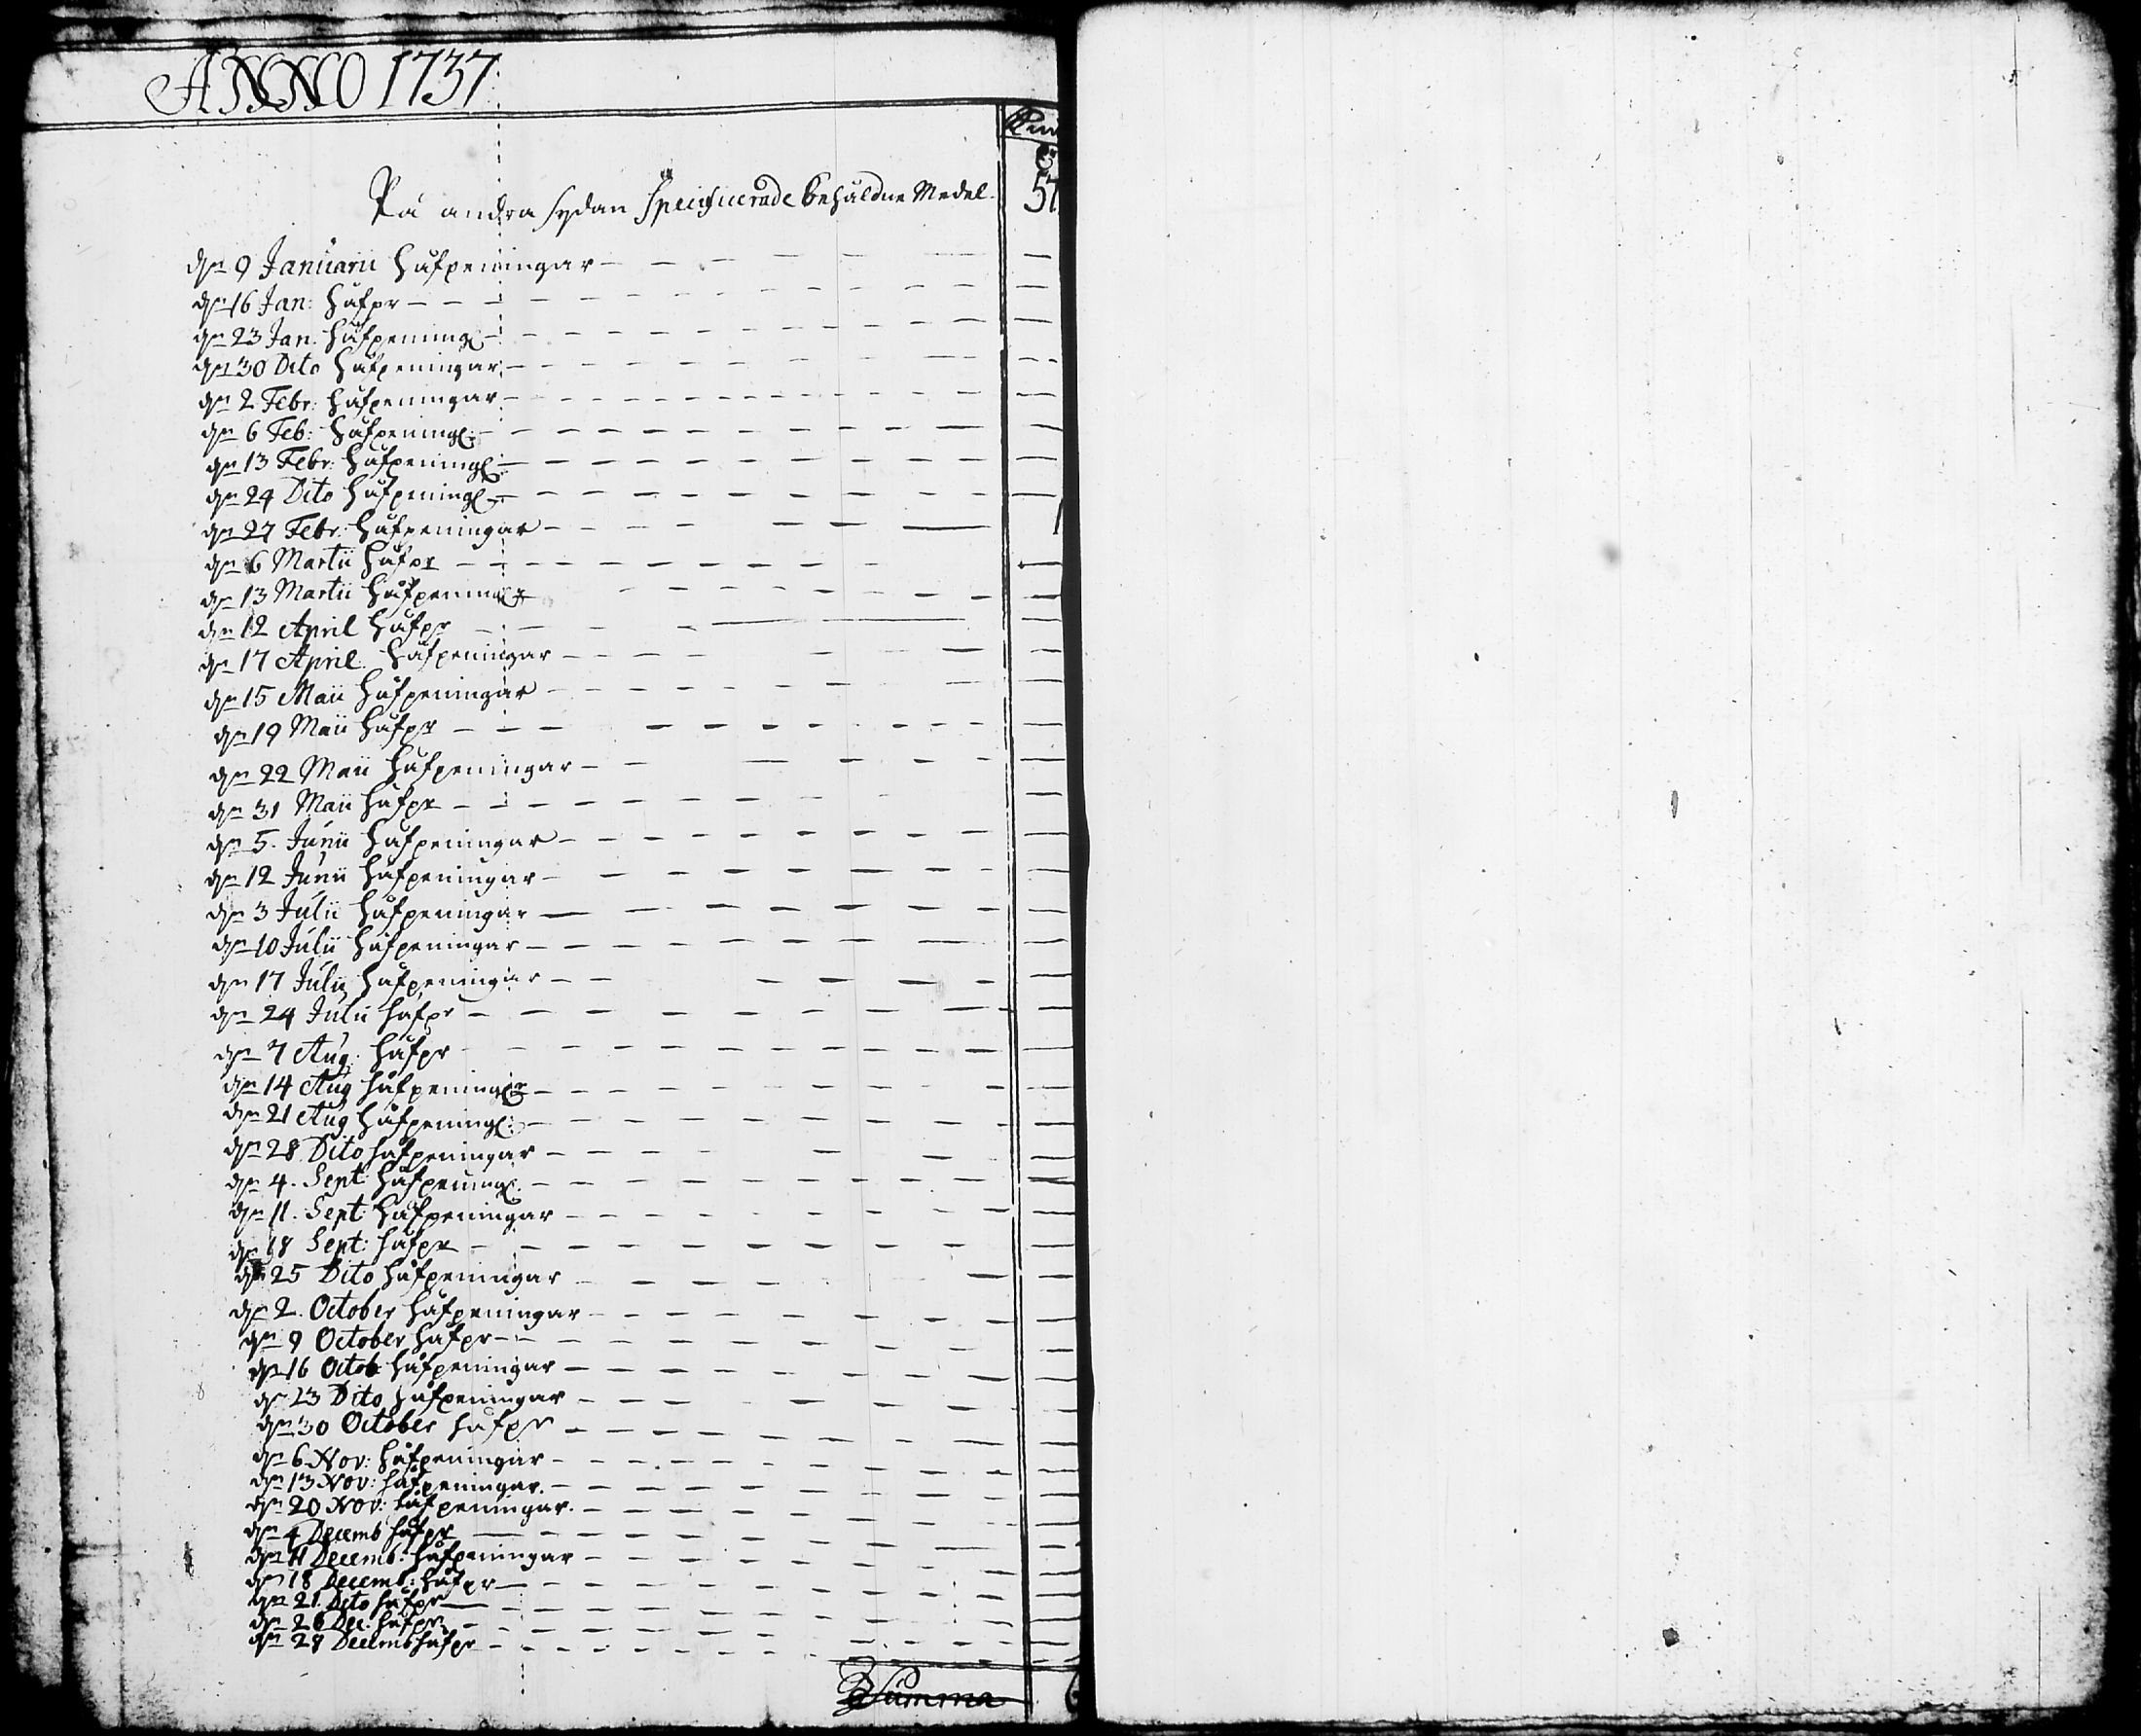 ANNO 1737
På andra sydan specificerade behåldne Medel.
57
d̅n 9 Januarii håfpeningar
d̅n 16 Jan: håfpr
d̅n 23 Jan. håfpening:
d̅n 30 Dito håfpeningar
d̅n 2 Febr: håfpeningar
d̅n 6 Feb: håfpening:
d̅n 13 Febr: håfpening:
d̅n 24 Dito håfpening:
d̅n 27 Febr: håfpeningar
d̅n 6 Martii håfpr
d̅n 13 Martii håfpening:
d̅n 12 April håfpr
d̅n 17 April. håfpeningar
d̅n 15 Maii håfpeningar
d̅n 19 Maii håfpr
d̅n 22 Maii håfpeningar
d̅n 31 Maii håfpr
d̅n 5. Junii håfpeningar
d̅n 12 Junii håfpeningar
d̅n 3 Julii håfpeningar
d̅n 10 Julii håfpeningar
d̅n 17 Julii håfpeningar
d̅n 24 Julii håfpr
d̅n 7 Aug: håfpr
d̅n 14 Aug håfpening:
d̅n 21 Aug håfpening:
d̅n 28 Dito håfpeningar
d̅n 4. Sept: håfpening:
d̅n 11. Sept: håfpeningar
d̅n 18 Sept: håfpr
d̅n 25 Dito håfpeningar
d̅n 2. October håfpeningar
d̅n 9 October håfpr
d̅n 16 Octob håfpeningar
d̅n 23 Dito håfpeningar
d̅n 30 October håfpr
d̅n 6 Nov: håfpeningar
d̅n 13 Nov: håfpeningar.
d̅n 20 Nov: håfpeningar.
d̅n 4 Decemb håfpr
d̅n 11 Decemb: håfpeningar
d̅n 18 Decemb: håfpr
d̅n 21 Dito håfpr
d̅n 26 Dec. håfpr
d̅n 28 Decemb håfpr
Summa